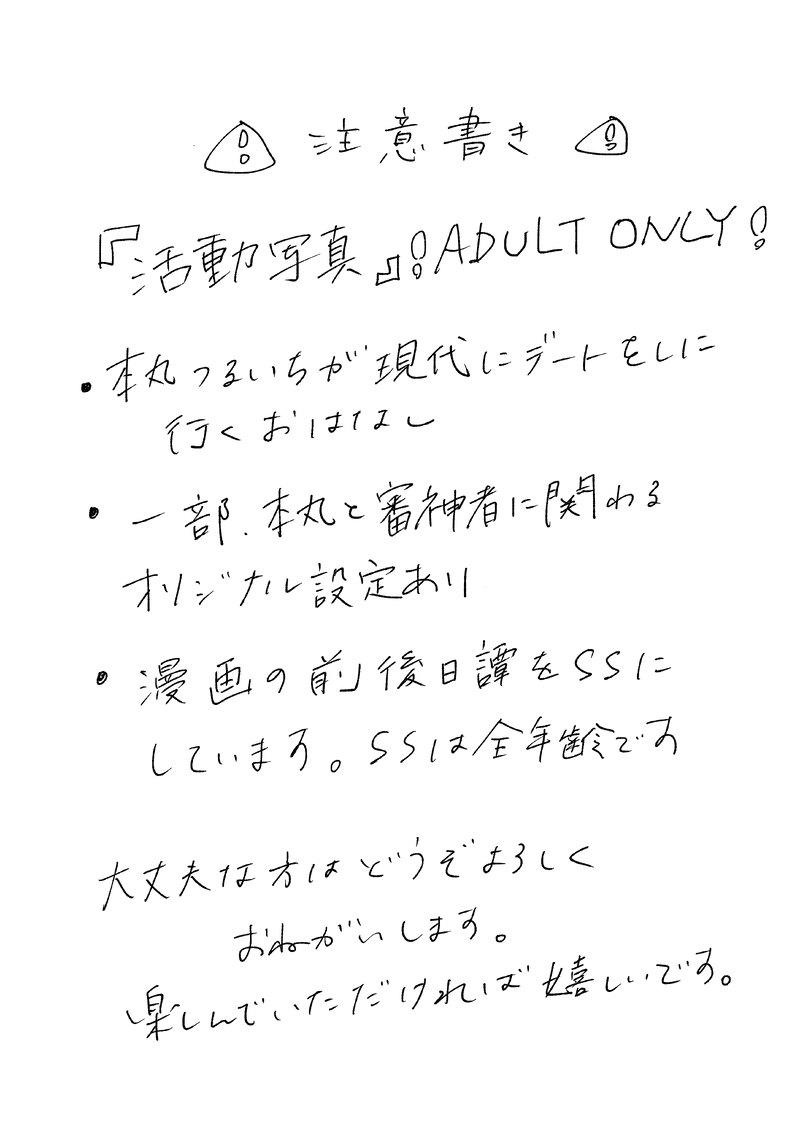 ⚠ 注意書き ⚠
『活動写真』!ADULT ONLY!
・本丸つるいちが現代にデートをしに
行くおはなし
・一部、本丸と審神者に関わる
オリジナル設定あり
・漫画の前後日譚をSSに
しています。SSは全年齢です
大丈夫な方はどうぞよろしく
おねがいします。
楽しんでいただければ嬉しいです。